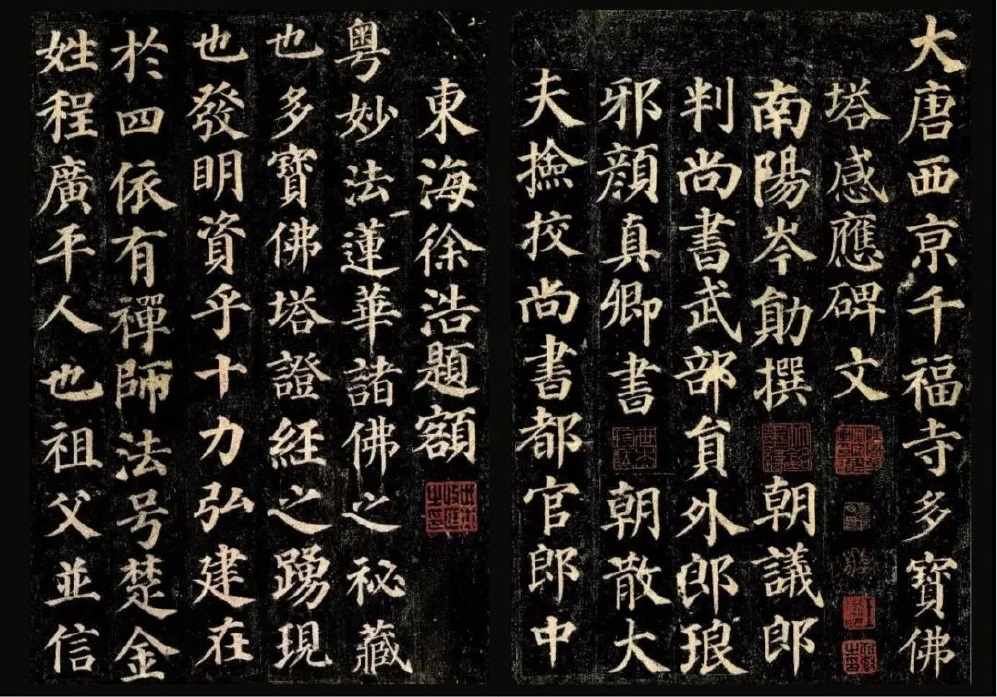 大唐西京千福寺多寶佛
塔感應碑文
南陽岑勛撰 朝議郎
判尚書武部員外郎琅
邪顏真卿書 朝散大
夫撿挍尚書都官郎中
東海徐浩題額
粵妙法蓮華諸佛之祕藏
也多寶佛塔證經之踴現
也發明資乎十力弘建在
於四依有禪師法号楚金
姓程廣平人也祖父並信